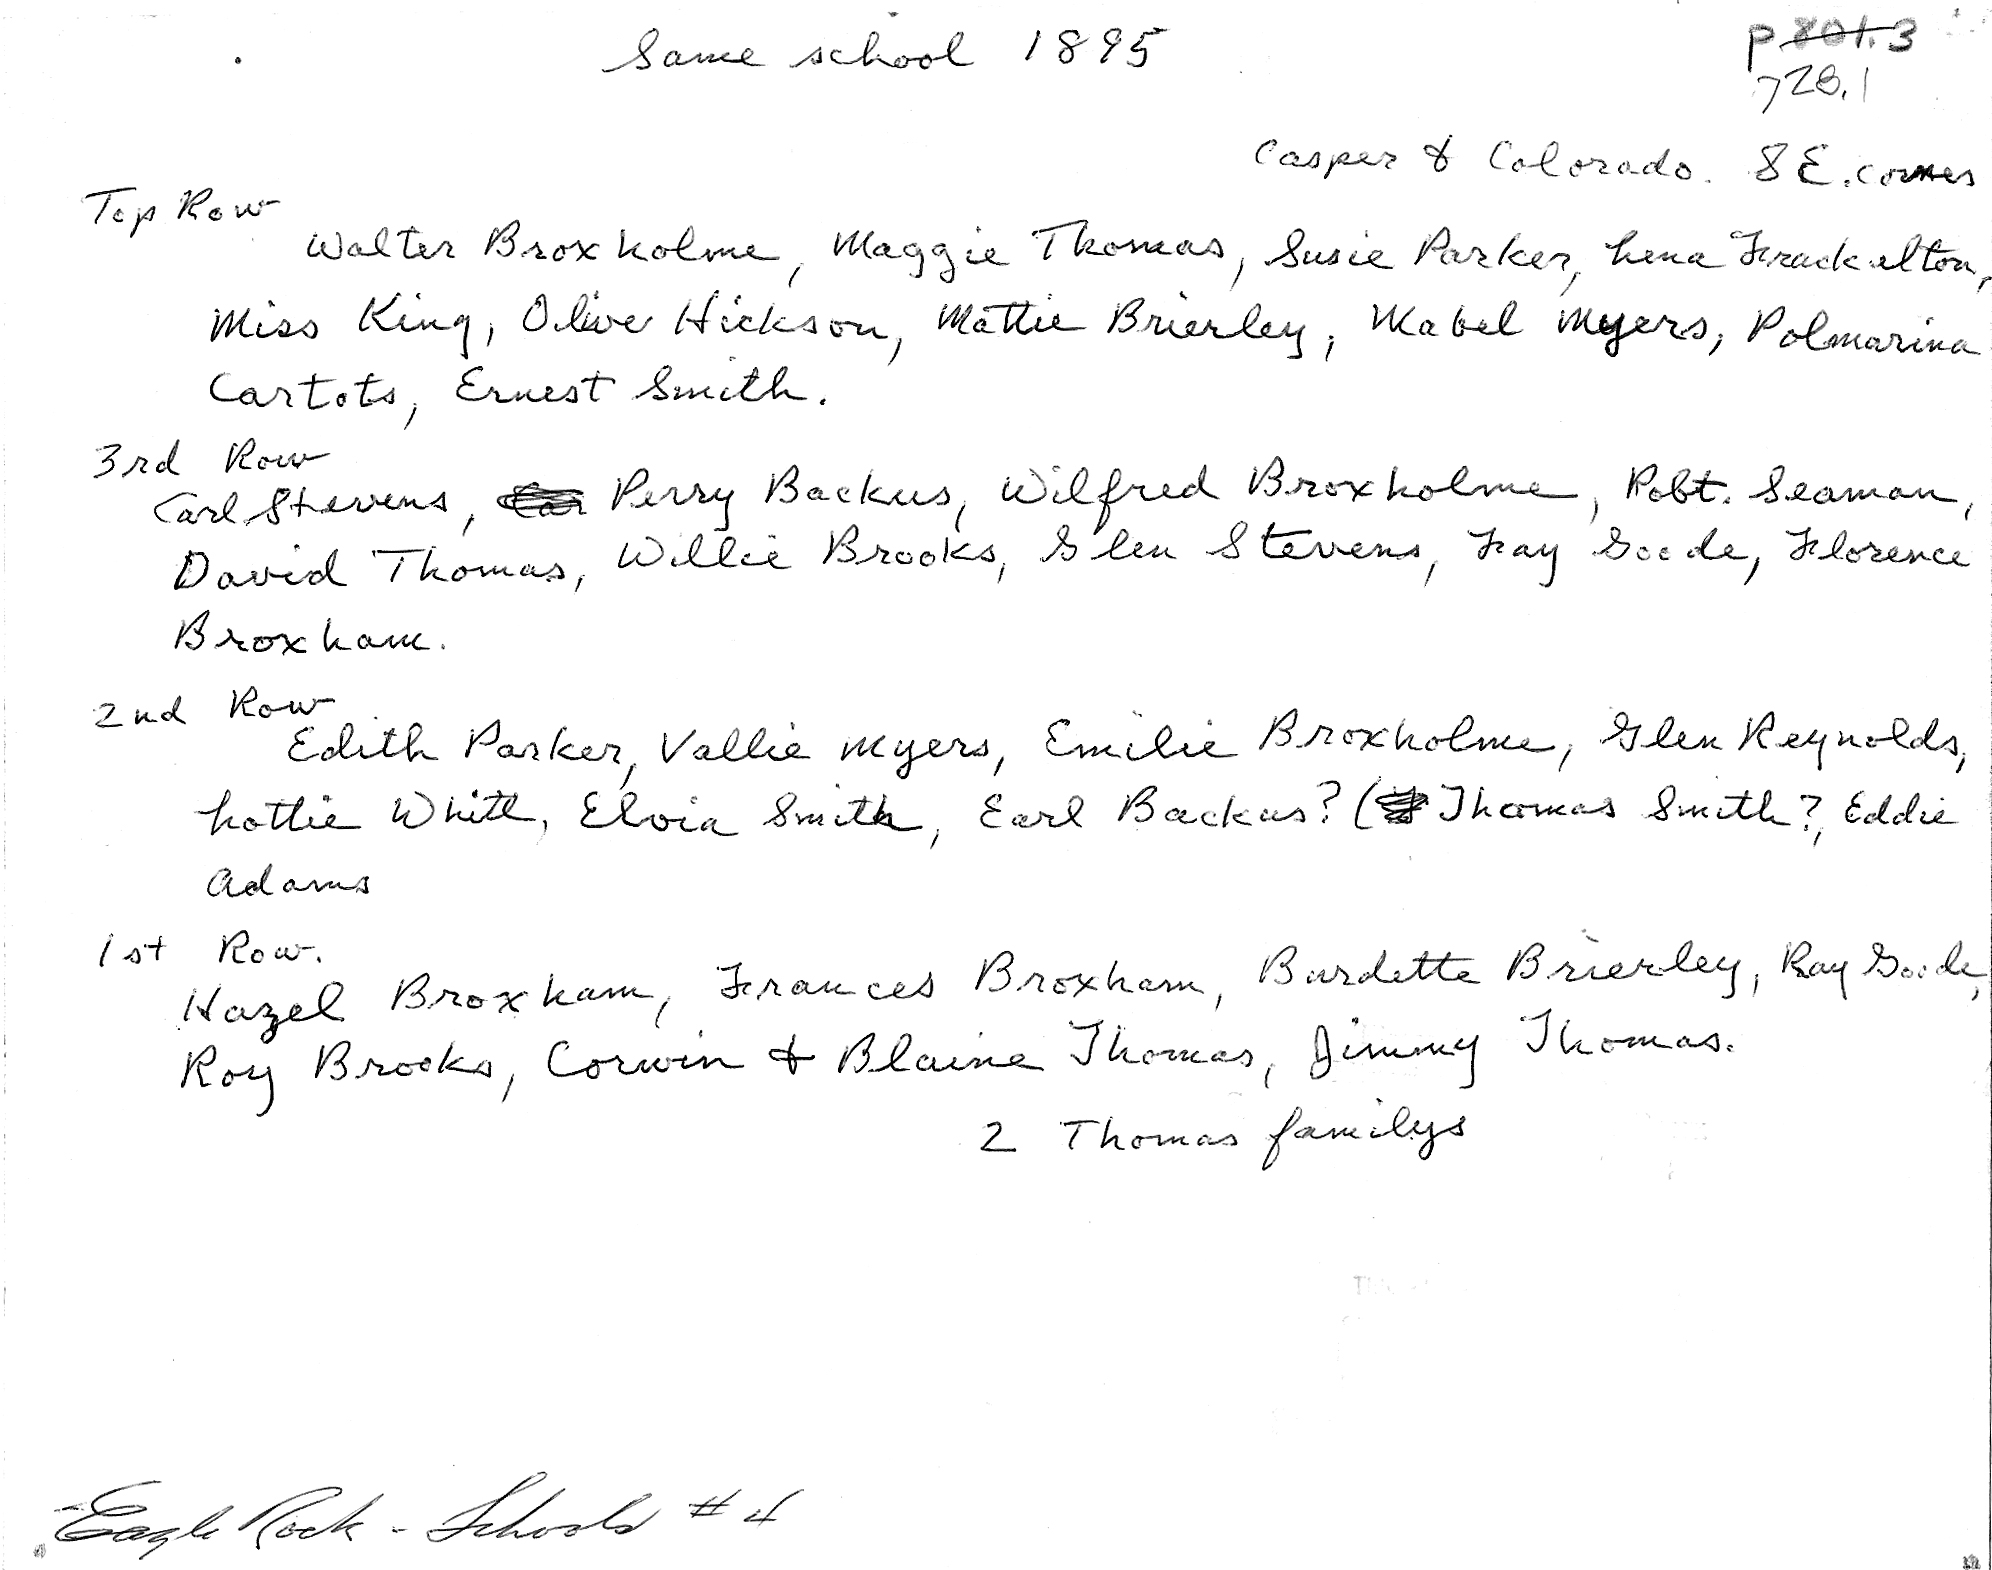 Same school 1895
p 801.3
728.1
Casper & Colorado. S E. corner
Top Row
Walter Broxholme, Maggie Thomas, Susie Parker, Lena Frackelton,
Miss King, Olive Hickson, Mattie Brierley, Mabel Myers, Polmarina
Cartots, Ernest Smith.
3rd Row
Carl Stevens, Perry Backus, Wilfred Broxholme, Robt. Seaman,
David Thomas, Willie Brooks, Glen Stevens, Fay Goode, Florence
Broxham.
2nd Row
Edith Parker, Vallie Myers, Emilie Broxholme, Glen Reynolds,
Lottie White, Elvia Smith, Earl Backus? ( Thomas Smith?, Eddie
Adams
1st Row.
Hazel Broxham, Frances Broxham, Burdette Brierley, Ray Goode,
Roy Brooks, Corwin & Blaine Thomas, Jimmy Thomas.
2 Thomas familys
Eagle Rock - Schools # 4